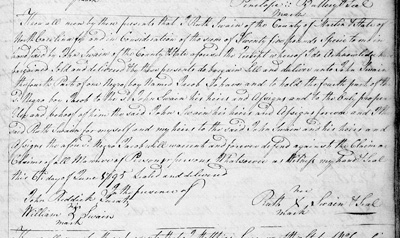 Know all men by these presents that I Ruth Swain of the County of Martin & State of
North Carolina for and in Consideration of the sum of Twenty five pounds Specie to me in
hand paid by Jno Swain of the County & State aforesaid the Receipt whereof I do Acknowledge
bargained Sold and delivered & by these presents do bargain Sell and deliver unto John Swain
the fourth Part of one Negro boy Named Jacob To have and to hold the fourth part of the
sd Negro boy Jacob to the sd John Swain his heirs and Assigns and to the Only proper
Use and behoof of him the said John Swain his heirs and Assigns forever and I the
said Ruth Swain for myself and my heirs to the said John Swain his heirs and
Assigns the afore sd Negro Jacob shall warrant and forever defend against the Claim or
Claims of all Manner of Persons Whatsoever as Witness my hand & Seal
this 6th day of June 1795 Sealed and delivered
In the presence of
John Reddick Jurat
William X Swain
mark
Ruth X Swain Seal
mark